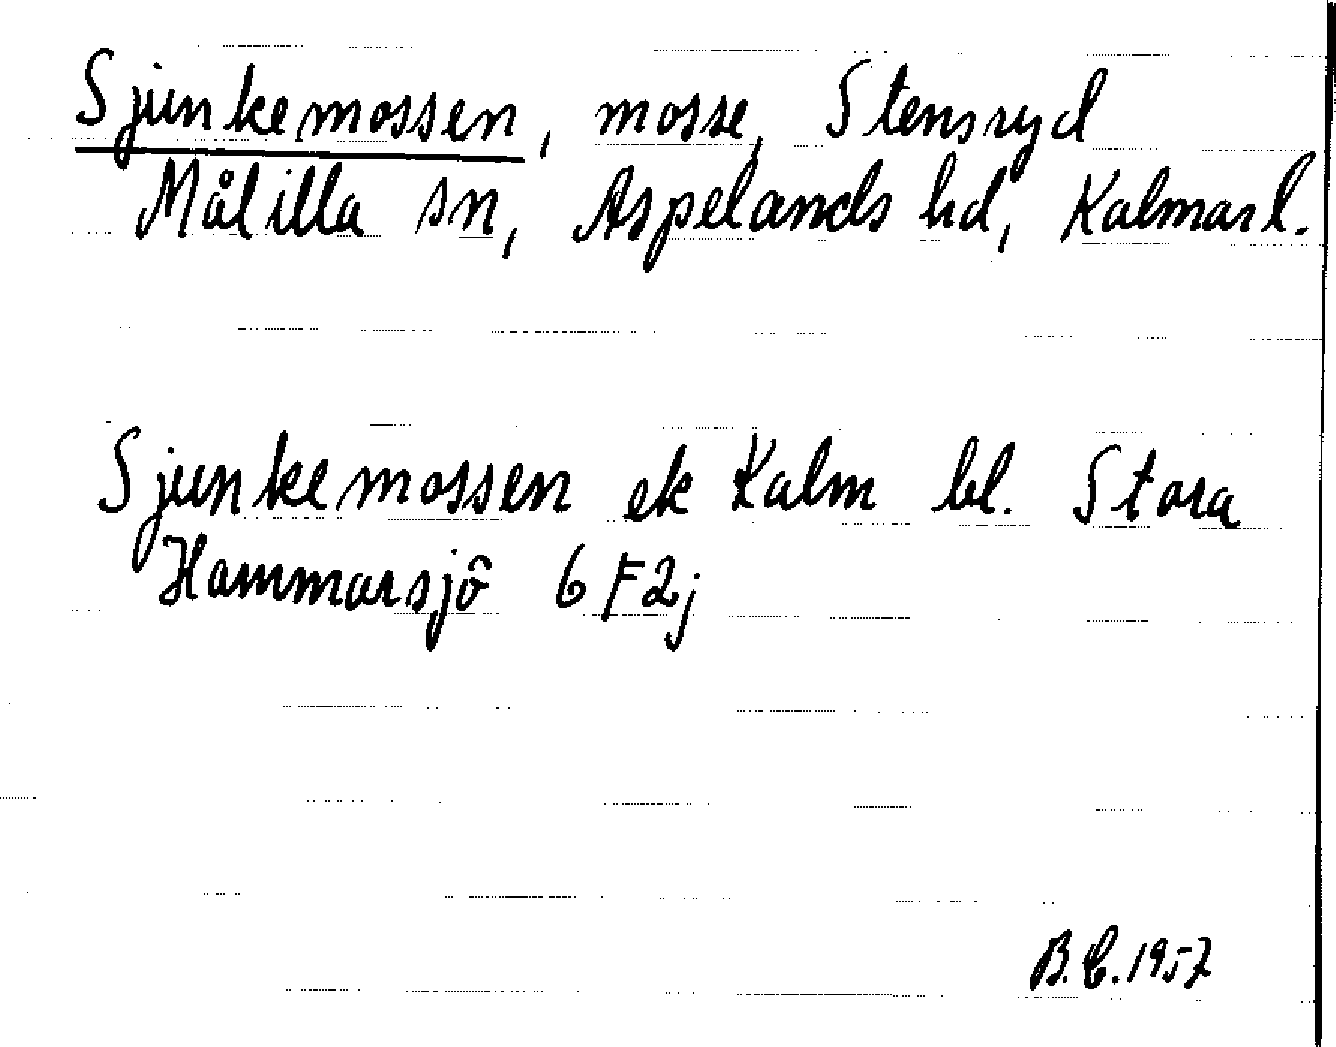 Sjunkemossen, mosse, Stensryd
Målilla sn, Aspelands hd, Kalmarl.
Sjunkemossen ek Kalm bl. Stora
Hammarsjö 6F2j
B.C.1957